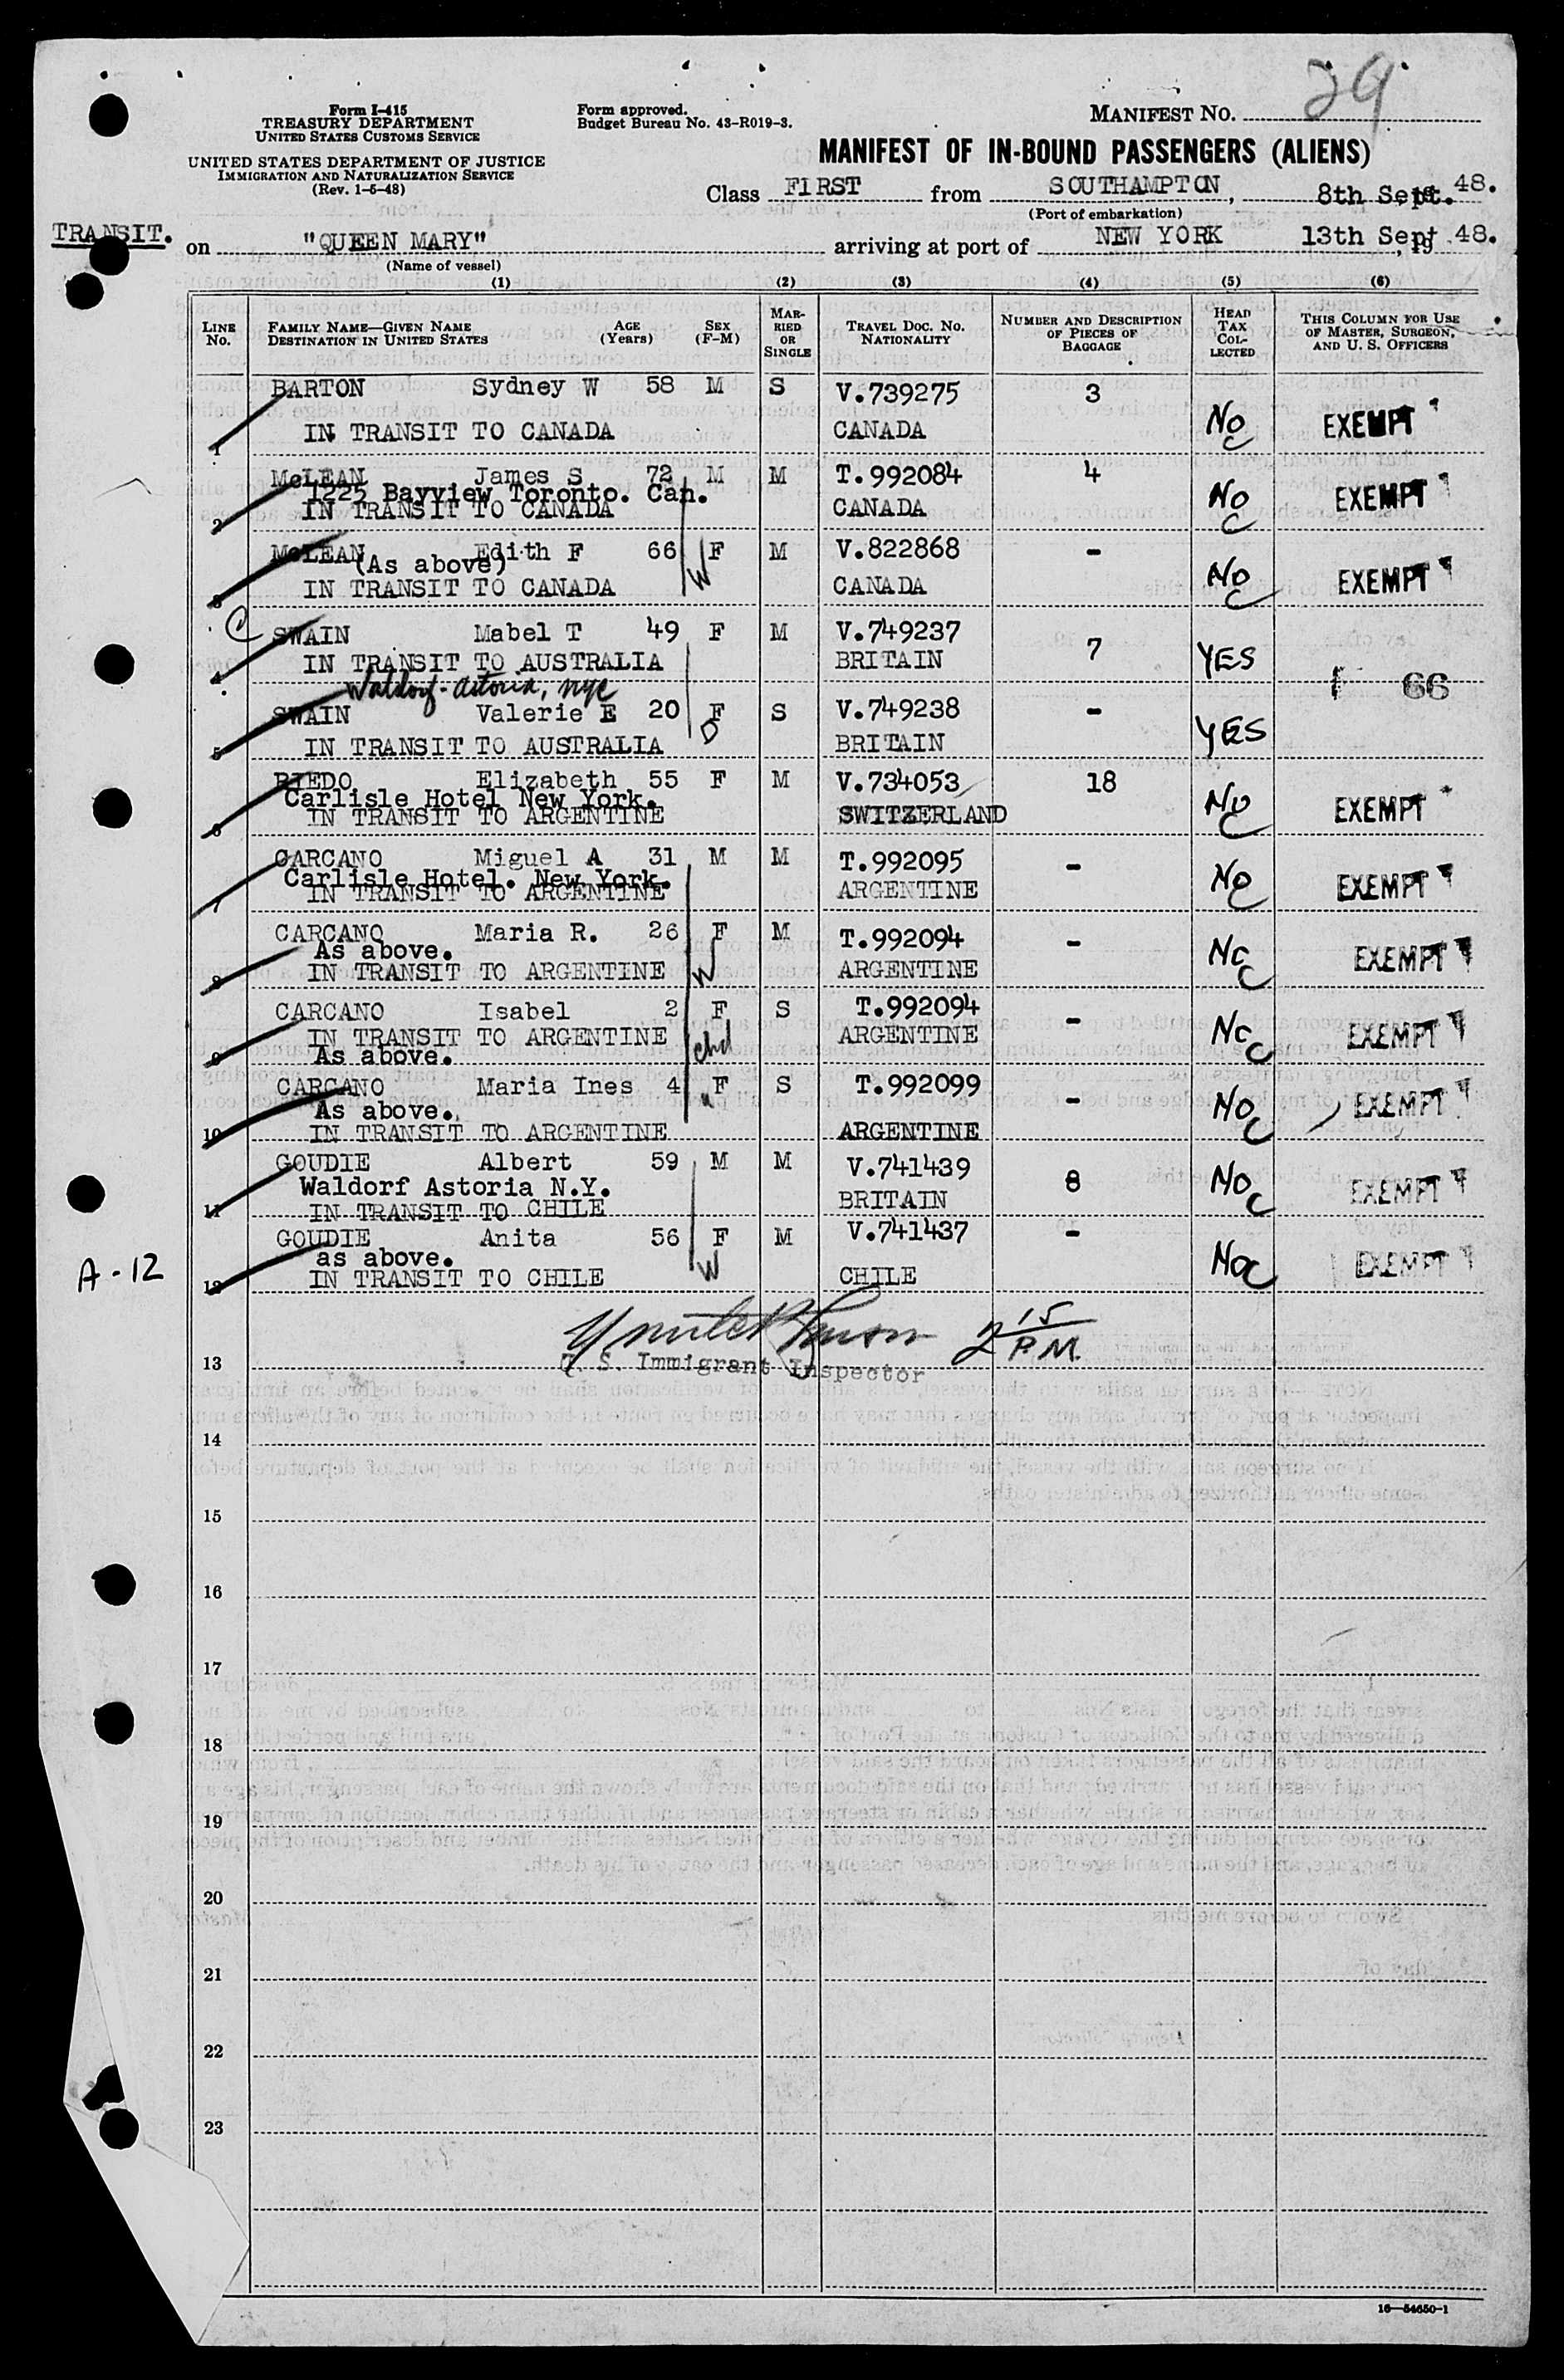 29
Form I-415
TREASURY DEPARTMENT
UNITED STATES CUSTOMS SERVICE
UNITED STATES DEPARTMENT OF JUSTICE
IMMIGRATION AND NATURALIZATION SERVICE
(Rev. 1-5-48)
Form approved.
Budget Bureau No. 43-R019-3.
MANIFEST NO.
MANIFEST OF IN-BOUND PASSENGERS (ALIENS)
Class FIRST from SOUTHAMPTON, 8th Sept. 48.
(Port of embarkation)
TRANSIT.
on "QUEEN MARY" arriving at port of NEW YORK 13th Sept, 19 48.
(Name of vessel)
(1) (2) (3) (4) (5) (6)
LINE No. FAMILY NAME—GIVEN NAME DESTINATION IN UNITED STATES AGE (Years) SEX (F-M) MARRIED OR SINGLE TRAVEL DOC. NO. NATIONALITY NUMBER AND DESCRIPTION OF PIECES OF BAGGAGE HEAD TAX COLLECTED THIS COLUMN FOR USE OF MASTER, SURGEON, AND U. S. OFFICERS
BARTON Sydney W 58 M S V.739275 3
1 IN TRANSIT TO CANADA CANADA No C EXEMPT
McLEAN James S 72 M M T.992084 4
1225 Bayview Toronto. Can.
2 IN TRANSIT TO CANADA CANADA No C EXEMPT
McLEAN Edith F 66 W F M V.822868 -
(As above)
3 IN TRANSIT TO CANADA CANADA No C EXEMPT
C SWAIN Mabel T 49 F M V.749237 7
4 IN TRANSIT TO AUSTRALIA BRITAIN YES 66
Waldorf-Astoria, NYC
SWAIN Valerie E 20 F D S V.749238 -
5 IN TRANSIT TO AUSTRALIA BRITAIN YES
RIEDO Elizabeth 55 F M V.734053 18
Carlisle Hotel New York.
6 IN TRANSIT TO ARGENTINE SWITZERLAND No C EXEMPT
CARCANO Miguel A 31 M M T.992095 -
Carlisle Hotel. New York.
7 IN TRANSIT TO ARGENTINE ARGENTINE No C EXEMPT
CARCANO Maria R. 26 F W M T.992094 -
As above.
8 IN TRANSIT TO ARGENTINE ARGENTINE No C EXEMPT
CARCANO Isabel 2 F chd S T.992094 -
9 IN TRANSIT TO ARGENTINE ARGENTINE No C EXEMPT
As above.
CARCANO Maria Ines 4 " F S T.992099 -
As above.
10 IN TRANSIT TO ARGENTINE ARGENTINE No C EXEMPT
GOUDIE Albert 59 M M V.741439 8
Waldorf Astoria N.Y.
11 IN TRANSIT TO CHILE BRITAIN No C EXEMPT
GOUDIE Anita 56 F W M V.741437 -
as above.
12 IN TRANSIT TO CHILE CHILE No C EXEMPT
A-12
2 15 P.M.
13 U. S. Immigrant Inspector
14
15
16
17
18
19
20
21
22
23
16—54650-1